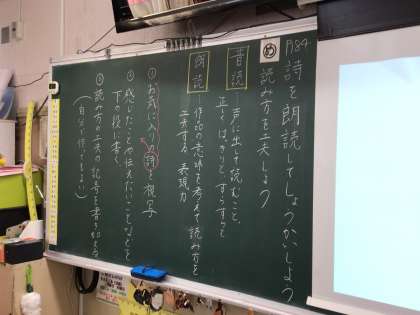 P84 詩を朗読してしょうかいしよう
め 読み方を工夫しよう
音読 声に出して読むこと、
正しくはっきりと、すらすらと
朗読 作品の意味を考えて読み方を
工夫する 表現力
①お気に入りの詩を視写
②感じたことや伝えたいことなどを
下の段に書く
③読み方の工夫の記号を書き加える
(自分で作ってもよい)